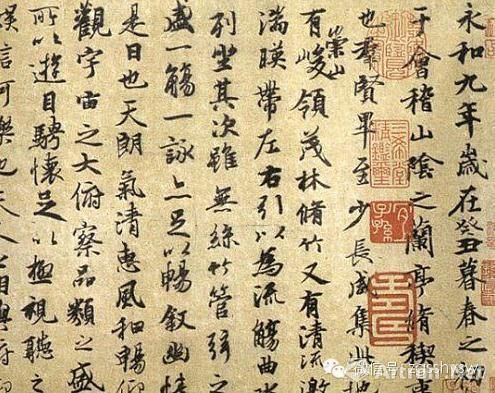 永和九年歲在癸丑暮春之初
于會稽山陰之蘭亭脩稧事
也羣賢畢至少長咸集此地
有崇山峻領茂林脩竹又有清流激
湍暎帶左右引以為流觴曲水
列坐其次雖無絲竹管弦之
盛一觴一詠亦足以暢敘幽情
是日也天朗氣清惠風和暢仰
觀宇宙之大俯察品類之盛
所以遊目騁懷足以極視聽之
娛信可樂也夫人之相與俯仰
微信号: zgsshxsw
Artron.Net